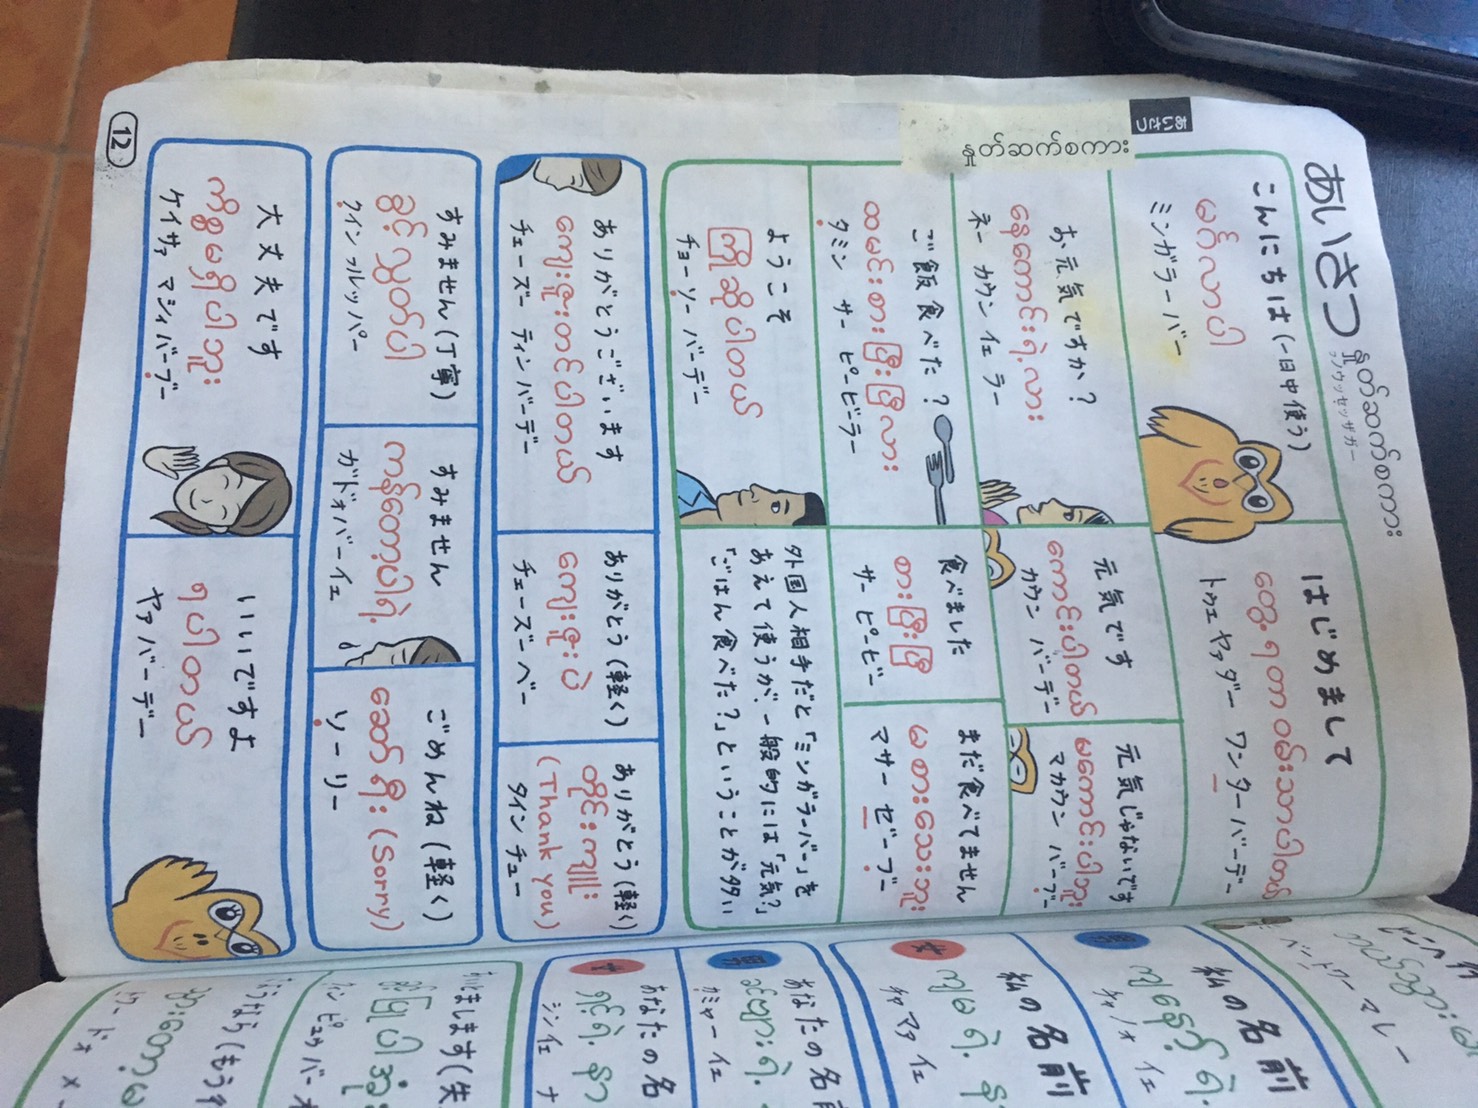 あいさつ
နှုတ်ဆက်စကား
あいさつ နှုတ်ဆက်စကား
フノウッセッザガー
こんにちは(一日中使う)
မင်္ဂလာပါ
ミンガラーバー
はじめまして
တွေ့ရတာဝမ်းသာပါတယ်
トゥエヤァダー ワンターバーデー
お元気ですか?
နေကောင်းရဲ့လား
ネーカウンイェラー
元気です
ကောင်းပါတယ်
カウンバーデー
元気じゃないです
မကောင်းပါဘူး
マカウンバーブー
ご飯食べた?
ထမင်းစားပြီးပြီလား
タミン サーピービーラー
食べました
စားပြီးပြီ
サーピービー
まだ食べてません
မစားသေးဘူး
マサーセーブー
ようこそ
ကြိုဆိုပါတယ်
チョーソーバーデー
外国人相手だと「ミンガラーバー」を
あえて使うが、一般的には「元気?」
「ごはん食べた?」ということが多い
ありがとうございます
ကျေးဇူးတင်ပါတယ်
チェーズーティンバーデー
ありがとう(軽く)
ကျေးဇူးပဲ
チェーズーベー
ありがとう(軽く)
တိုင်းကျူး
(Thank you)
タインチュー
すみません(丁寧)
ခွင့်လွှတ်ပါ
クインフルッパー
すみません
ကန်တော့ပါရဲ့
ガドォバーイェ
ごめんね(軽く)
ဆော်ရီး (Sorry)
ソーリー
大丈夫です
ကိစ္စမရှိပါဘူး
ケイサァマシィバーブー
いいですよ
ရပါတယ်
ヤァバーデー
12
私の名前
男
チャノォイェ
私の名前
女
ကျမရဲ့
チャマァイェ
あなたの名前
男
ခင်ဗျားရဲ့
カミャーイェ
あなたの名
女
ရှင်ရဲ့
シンイェ